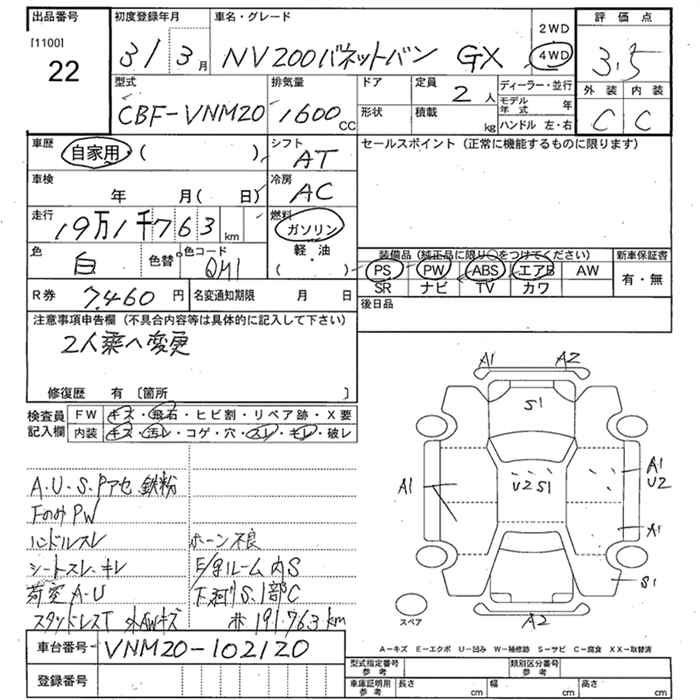 出品番号 初度登録年月 車名・グレード 2WD 評価点
[1100] 31 3月 NV200バネットバン GX 4WD 3.5
22 型式 排気量 ドア 定員 2人 ディーラー・並行 外装 内装
CBF-VNM20 1600cc 形状 積載 kg モデル年式 年 C C
ハンドル 左・右
車歴 自家用( ) シフト AT セールスポイント(正常に機能するものに限ります)
車検 年 月( 日) 冷房 AC
走行 19万1千763km 燃料 ガソリン
軽・油
( )
色 白 色替 色コード QM1
装備品(純正品に限り○をつけてください) 新車保証書
PS PW ABS エアB AW 有・無
SR ナビ TV カワ
R券 7,460円 名変通知期限 月 日 後日品
注意事項申告欄(不具合内容等は具体的に記入して下さい)
2人乗へ変更
修復歴 有〔箇所 〕
検査員 FW キズ・飛石・ヒビ割・リペア跡・X要
記入欄 内装 キズ・汚レ・コゲ・穴・スレ・キレ・破レ
A.U.S.Pアセ.鉄粉
FのみPW
ハンドルスレ ホーン不良
シートスレ.キレ E/gルーム内S
荷室A.U 下廻りS.1部C
スタッドレスT 外AWキズ 走191.763km
A1 A2
S1
A1 U2 S1 A1
U2
A1
S1
スペア A2
A-キズ E-エクボ U-凹み W-補修跡 S-サビ C-腐食 XX-取替済
車台番号 VNM20-102120
型式指定番号 参考 類別区分番号 参考
登録番号 車庫証明用 参考 長さ cm 幅 cm 高さ cm